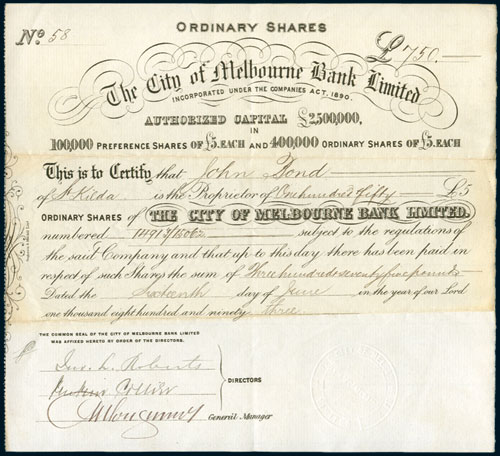 ORDINARY SHARES
No. 58
£750.
The City of Melbourne Bank Limited
INCORPORATED UNDER THE COMPANIES ACT, 1890.
AUTHORIZED CAPITAL £2,500,000,
IN
100,000 PREFERENCE SHARES OF £5. EACH AND 400,000 ORDINARY SHARES OF £5. EACH
This is to Certify that John Dond
of St Kilda is the Proprietor of One hundred fifty £5
ORDINARY SHARES OF THE CITY OF MELBOURNE BANK LIMITED.
numbered 14913/15062 subject to the regulations of
the said Company and that up to this day there has been paid in
respect of such Shares the sum of Three hundred seventy five pounds
Dated the Sixteenth day of June in the year of our Lord
one thousand eight hundred and ninety three
THE COMMON SEAL OF THE CITY OF MELBOURNE BANK LIMITED
WAS AFFIXED HERETO BY ORDER OF THE DIRECTORS.
Jno. L. Roberts
Jenkin Collier
DIRECTORS
General Manager